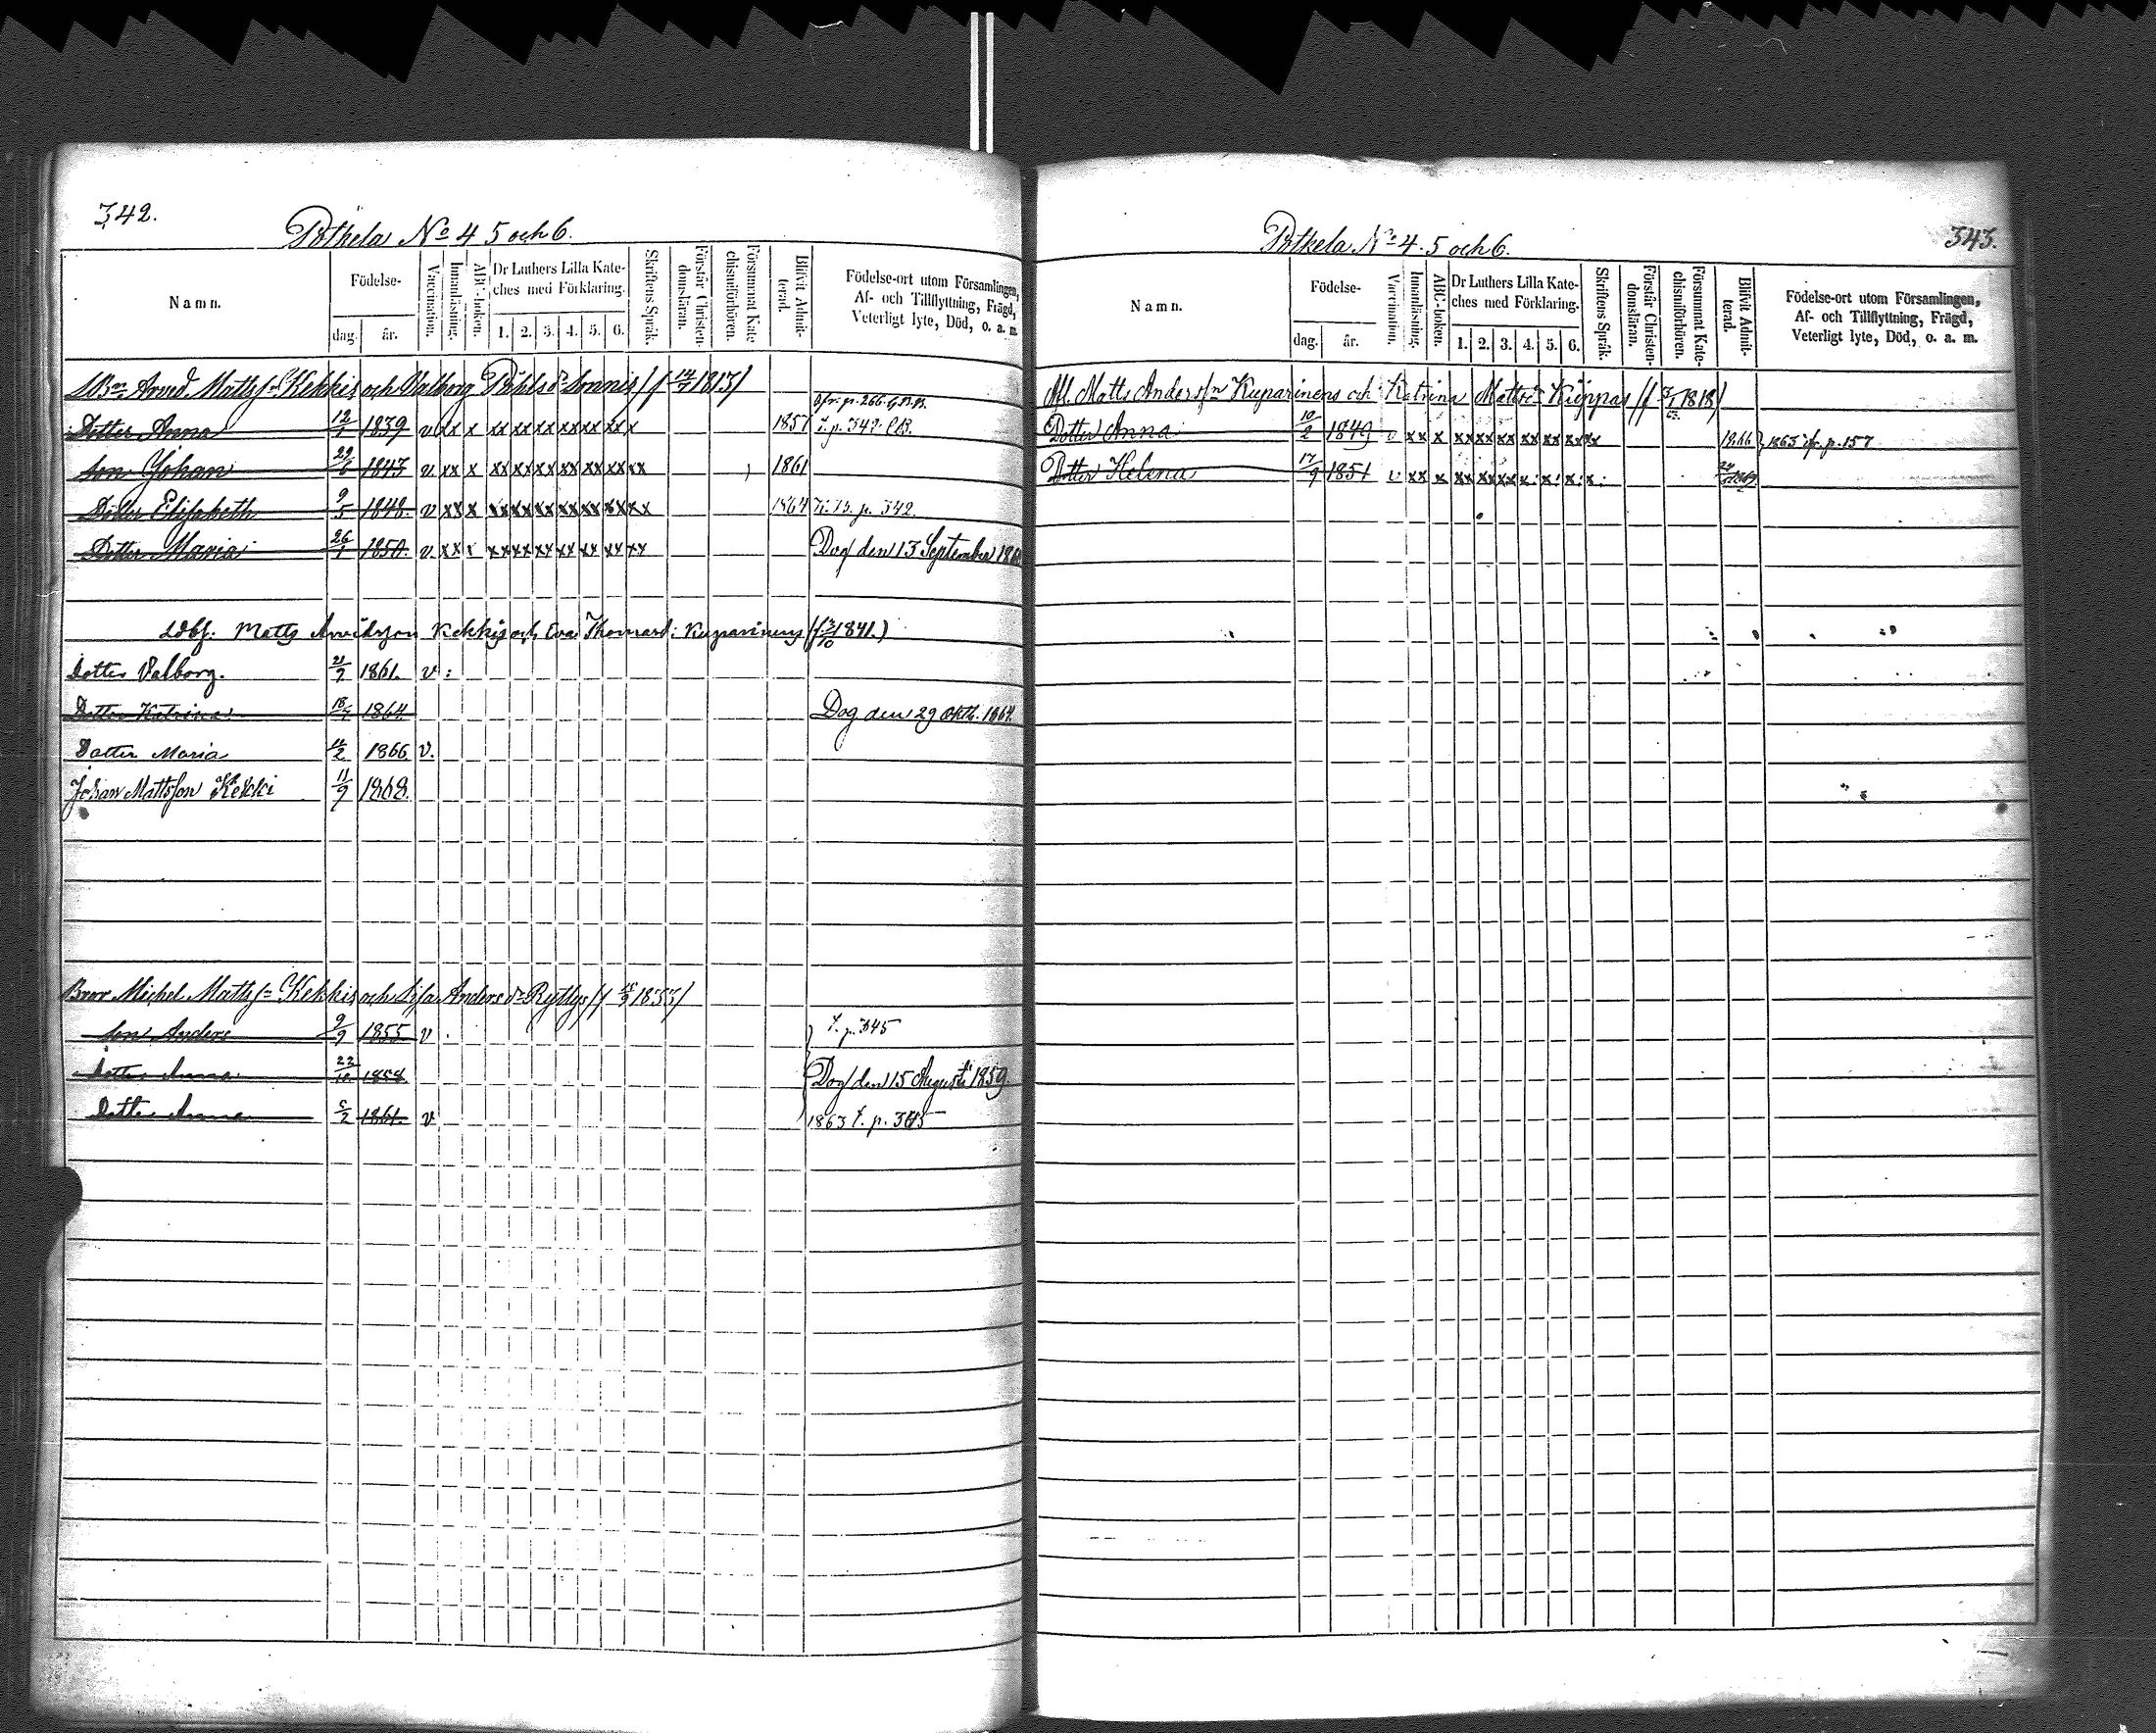 342.
Pötkela No 4 5 och 6.
Namn.
Födelse-
dag.
år.
Vaccination.
Innanläsning.
ABC-boken.
Dr Luthers Lilla Kate-
ches med Förklaring.
1. 2. 3. 4. 5. 6.
Skriftens Språk.
Förstår Christen-
domsläran.
Försummat Kate-
chismiförhören.
Blifvit Admit-
terad.
Födelse-ort utom Församlingen,
Af- och Tillflyttning, Frägd,
Veterligt lyte, Död, o. a. m.
Arved Mattsn Kekkis och Valborg Påhlsdr Sonnis 1813
Dotter Anna 1839 v xx x xx xx xx xx xx xx x 1857
Son Johan 1843 v xx x xx xx xx xx xx xx xx 1861
Dotter Elisabeth 9/5 1848 v xx x xx xx xx xx xx xx xx 1864 p. 342.
Dotter Maria 26/1 1850. v xx x xx xx xx xx xx xx xx Dog den 13 September
Matts Kekkis och Eva Thomasd: Kuparinens 1841.)
Dotter Valborg. 21/9 1861. v :
Dotter Katrina 1864 Dog den 29 Oktb. 1864.
Dotter Maria 1866 v.
Johan Mattsson Kekki 11/9 1868.
Bror Michel Mattsn Kekkis och Lisa Andersdr Ryttys
Son Anders 9/9 1855 v. p. 345
Dotter Anna 22/10 1858 Dog den 15 Augusti 1859
Dotter Anna 1861. v 1863 p. 345
343.
Pötkela No 4. 5 och 6.
Namn.
Födelse-
dag.
år.
Vaccination.
Innanläsning.
ABC-boken.
Dr Luthers Lilla Kate-
ches med Förklaring.
1. 2. 3. 4. 5. 6.
Skriftens Språk.
Förstår Christen-
domsläran.
Försummat Kate-
chismiförhören.
Blifvit Admit-
terad.
Födelse-ort utom Församlingen,
Af- och Tillflyttning, Frägd,
Veterligt lyte, Död, o. a. m.
Matts Andersn Kuparinens och Katrina Mattsdr Kuppas 1818)
Dotter Anna 10/2 1849 v xx x xx xx xx xx xx xx xx 1866 } 1865 p. 157
Dotter Helena 17/9 1851 v xx x xx xx xx x. x. x. x.